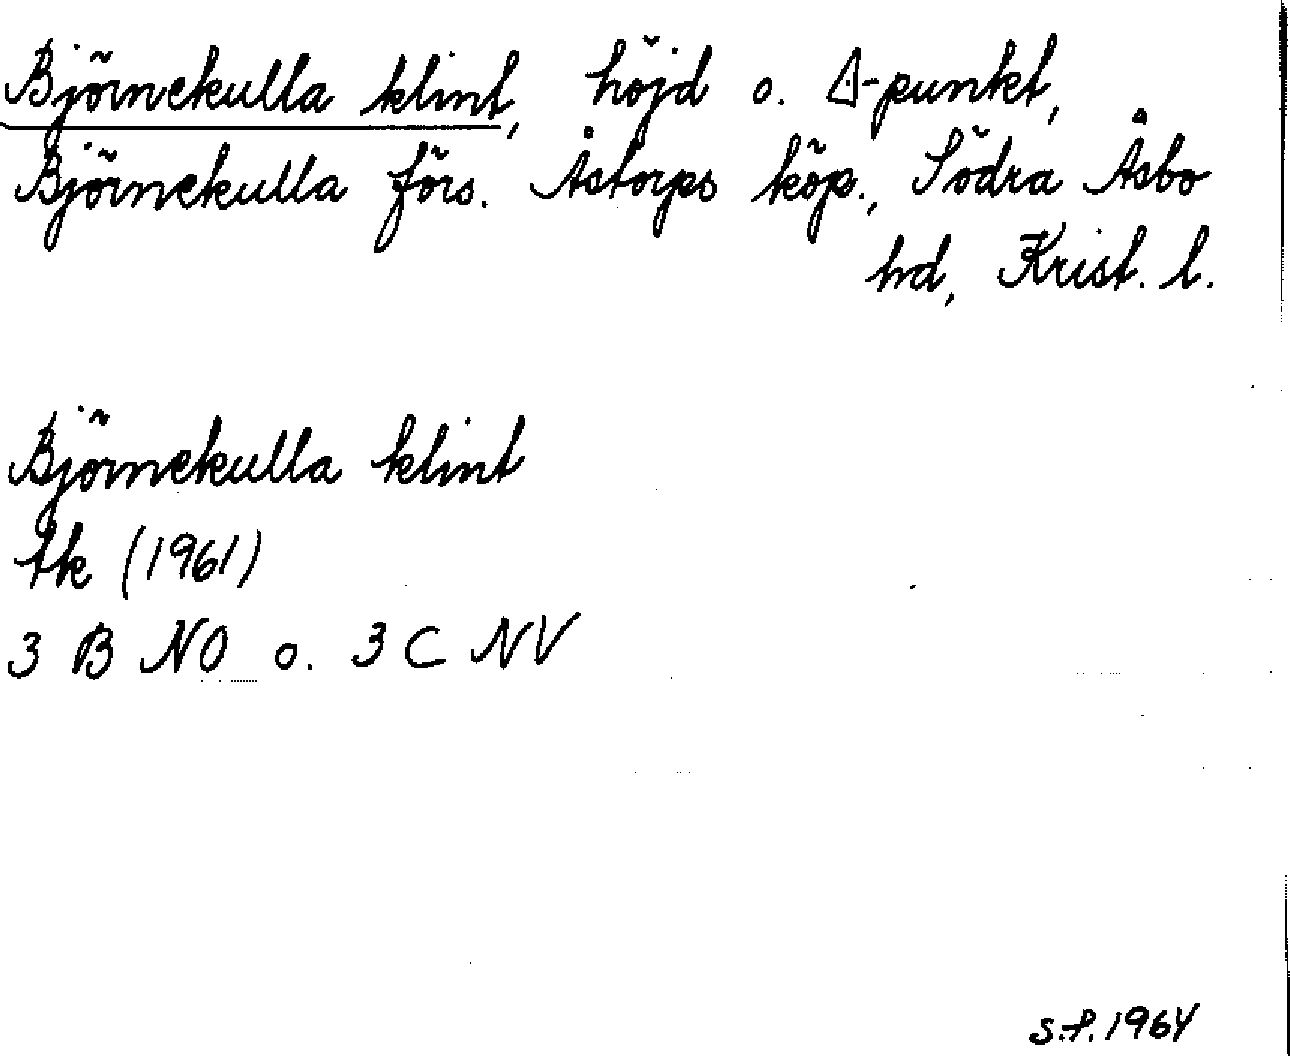 Björnekulla klint, höjd o. △-punkt,
Björnekulla förs. Åstorps köp., Södra Åsbo
hd, Krist. l.
Björnekulla klint
tk (1961)
3 B NO o. 3 C NV
S.f. 1964